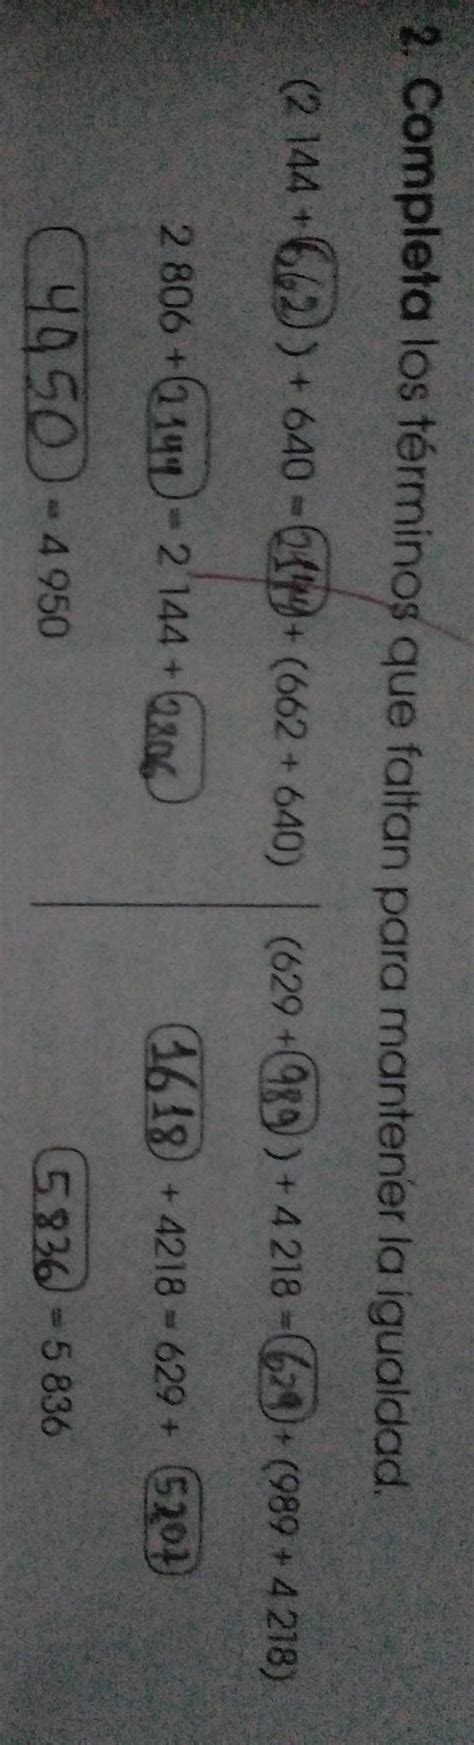 2. Completa los términos que faltan para mantener la igualdad.
(2 144 + 662) + 640 = 2144 + (662 + 640)
2 806 + 2144 = 2 144 + 2806
4950 = 4 950
(629 + 989) + 4 218 = 629 + (989 + 4 218)
1618 + 4218 = 629 + 5207
5836 = 5 836